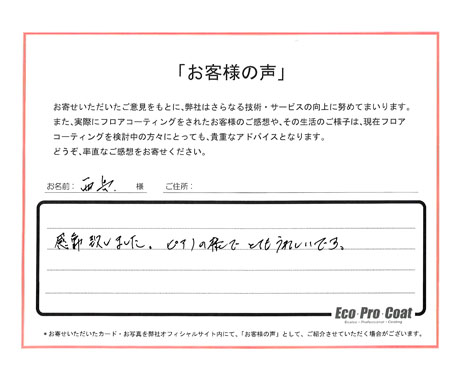 「お客様の声」
お寄せいただいたご意見をもとに、弊社はさらなる技術・サービスの向上に努めてまいります。
また、実際にフロアコーティングをされたお客様のご感想や、その生活のご様子は、現在フロア
コーティングを検討中の方々にとっても、貴重なアドバイスとなります。
どうぞ、率直なご感想をお寄せください。
お名前： 様 ご住所：
感動致しました。ピアノの様で とてもうれしいです。
Eco・Pro・Coat
＊お寄せいただいたカード・お写真を弊社オフィシャルサイト内にて、「お客様の声」として、ご紹介させていただく場合がございます。